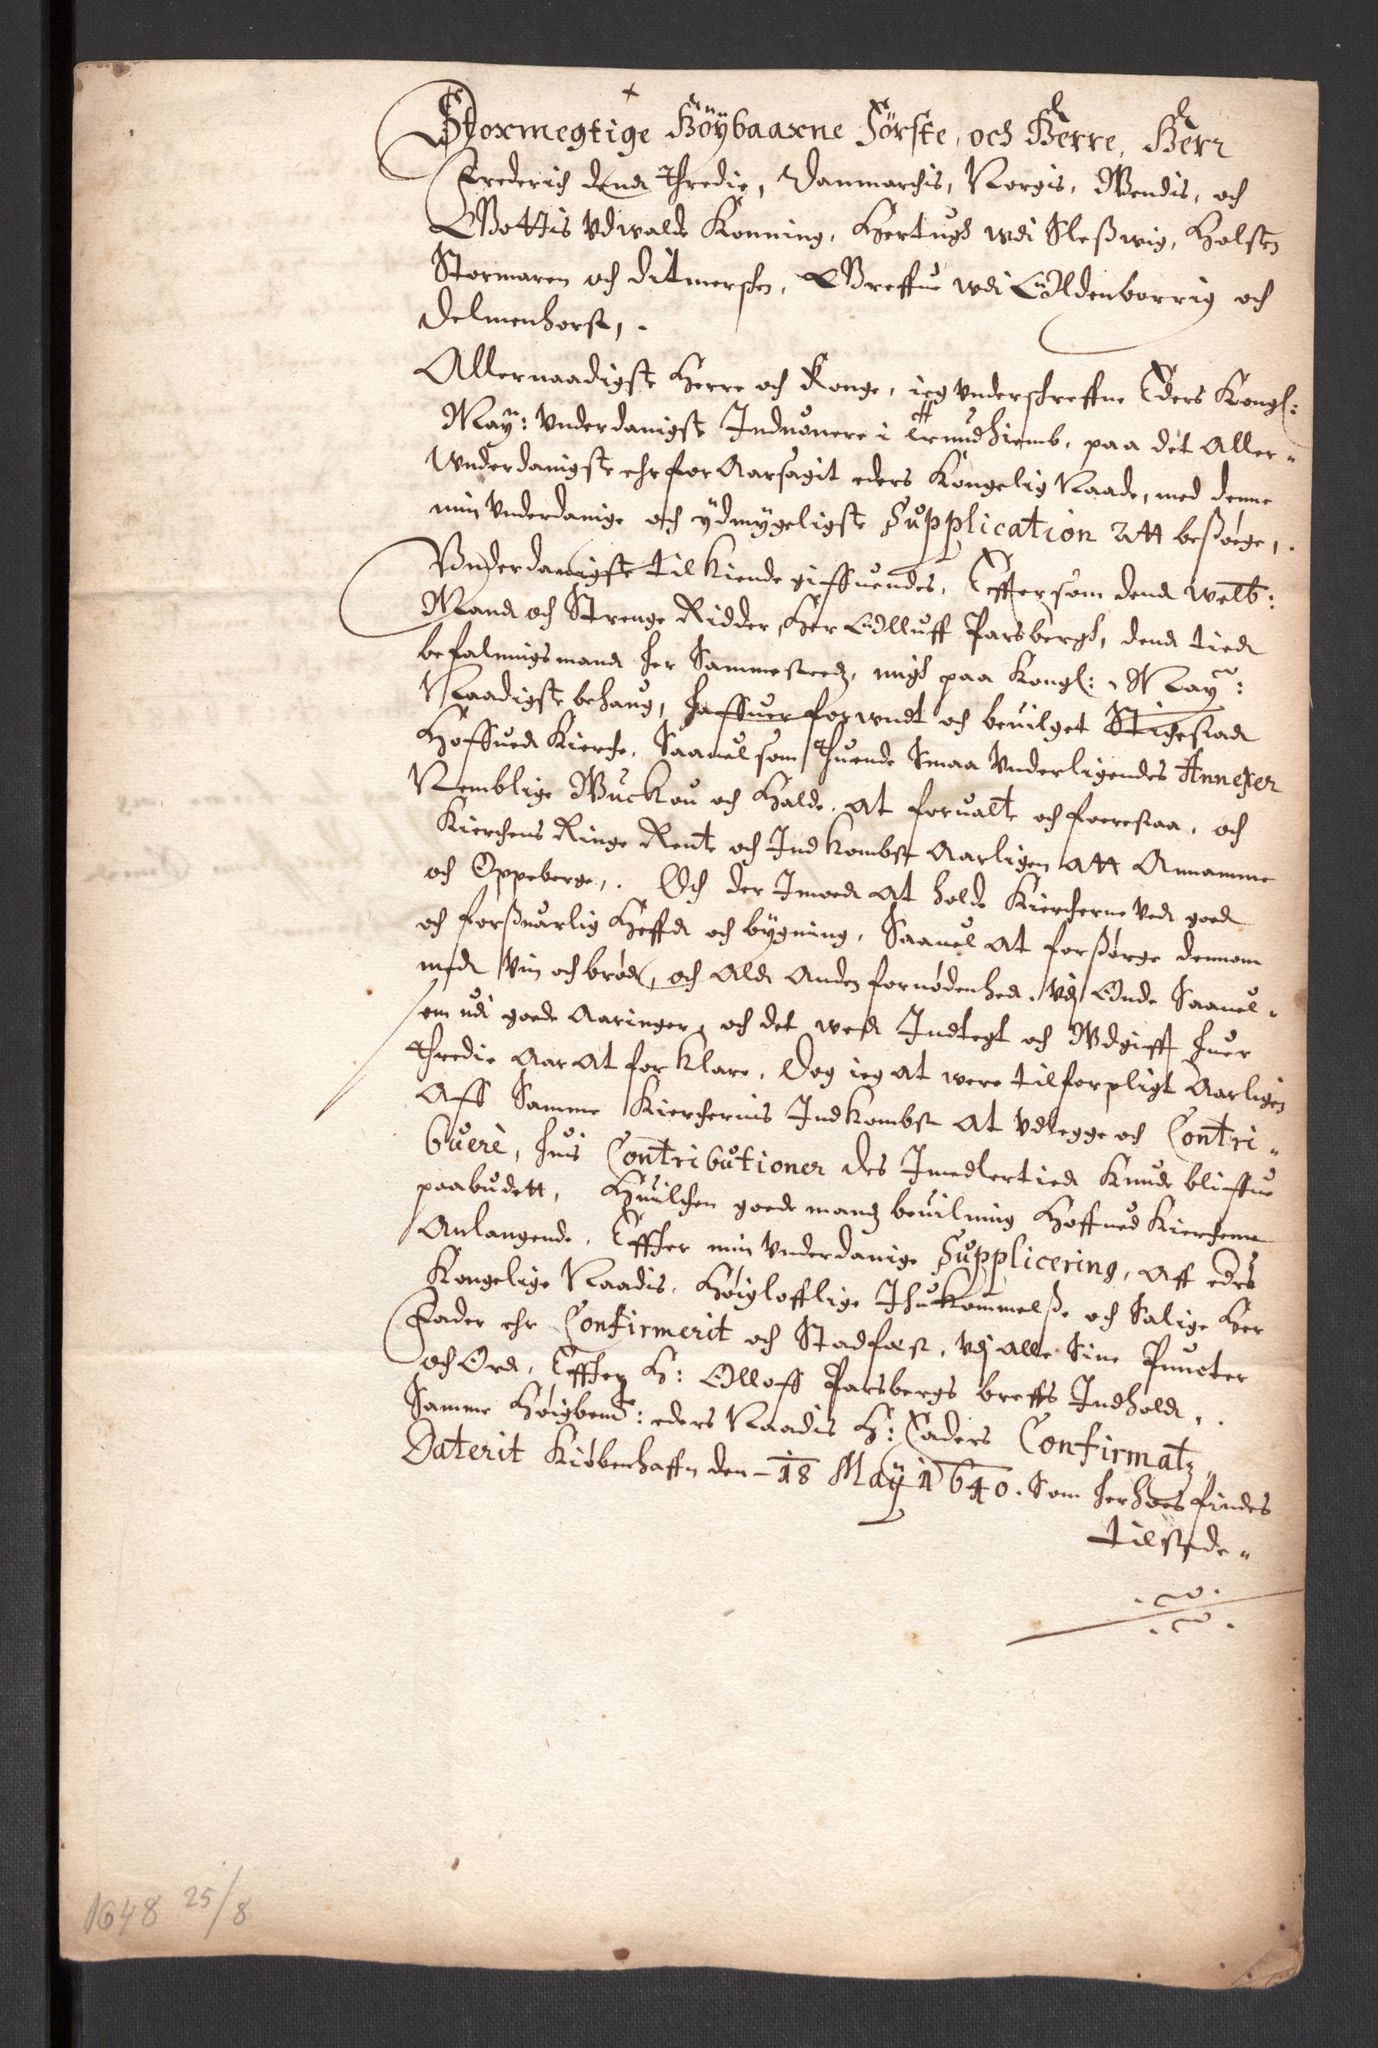 Stormegtige Höÿbaarne Förste, och Herre, Herr
Frederich dend Thredie, Danmarchis, Norgis, Wendis, och
Gottis Udwalde Konning, Hertugh wdi Sleßwig, Holsten
Stormaren och Ditmersken, Greffue wdi Oldenborrig och
Delmenhorst,.
Allernaadigste Herre och Konge, ieg underschreffne Eders Kongl:
May: underdanigste Induonere i Trundhiemb, paa det Aller-
Underdanigste ehr foraarsagit eders Kongelig Naade, med denne
min underdanige och ÿdmÿgeligste Supplication att besøge,.
Underdanigste tilkiende giffuendes, Effter som dend welb:
Mand och Strenge Ridder, Her Olluff Parsbergh, dend tied
befalningsmand her Sammesteedz, migh paa Kongl: May:
Naadigste behaug, haffuer forundt och beuilget Stichestad
Hoffued Kierche, Saauel som Thuende Smaa Underligendes Annexer
Nemblige Wuckou och Halde, at forualte och forestaa, och
Kierchens Ringe Rente och Indkombst Aarligen att Annamme
och Oppeberge,. Och der Imoed at holde Kiercherne ved goed
och forsuarlig Heffd och bÿgning, Saauel at forsørge dennom
med Vin och brød, och Ald Anden fornødenhed, udj Onde Saauel-
om udi goede Aaringer, och det med Indtegt och Udgifft huer
Thredie Aar at forklare, Dog ieg at were tilforpligt Aarligen
Aff Samme Kierchernis Indkombst at Udlegge och Contri-
buere, huis Contributioner des Imedlertied kunde bliffue
paabudett, Huilchen goede mandz beuilning Hoffued Kiercherne
Anlangende, Effter min Underdanige Supplicering, aff eders
Kongelige Naadis, Høigloffllige Ihukommelße och Salige Her
Fader ehr Confirmerit och Stadfæst, udj alle Sine Puncter
och Ord, Effter H: Olloff Parsbergs breffs Indhold,.
Samme Høigbem: eders Naadis H: Faders Confirmatz
Daterit Kiøbenhaffn den 18 Maÿ 1640. Som herhoes findes
tilstede.
1648 25/8